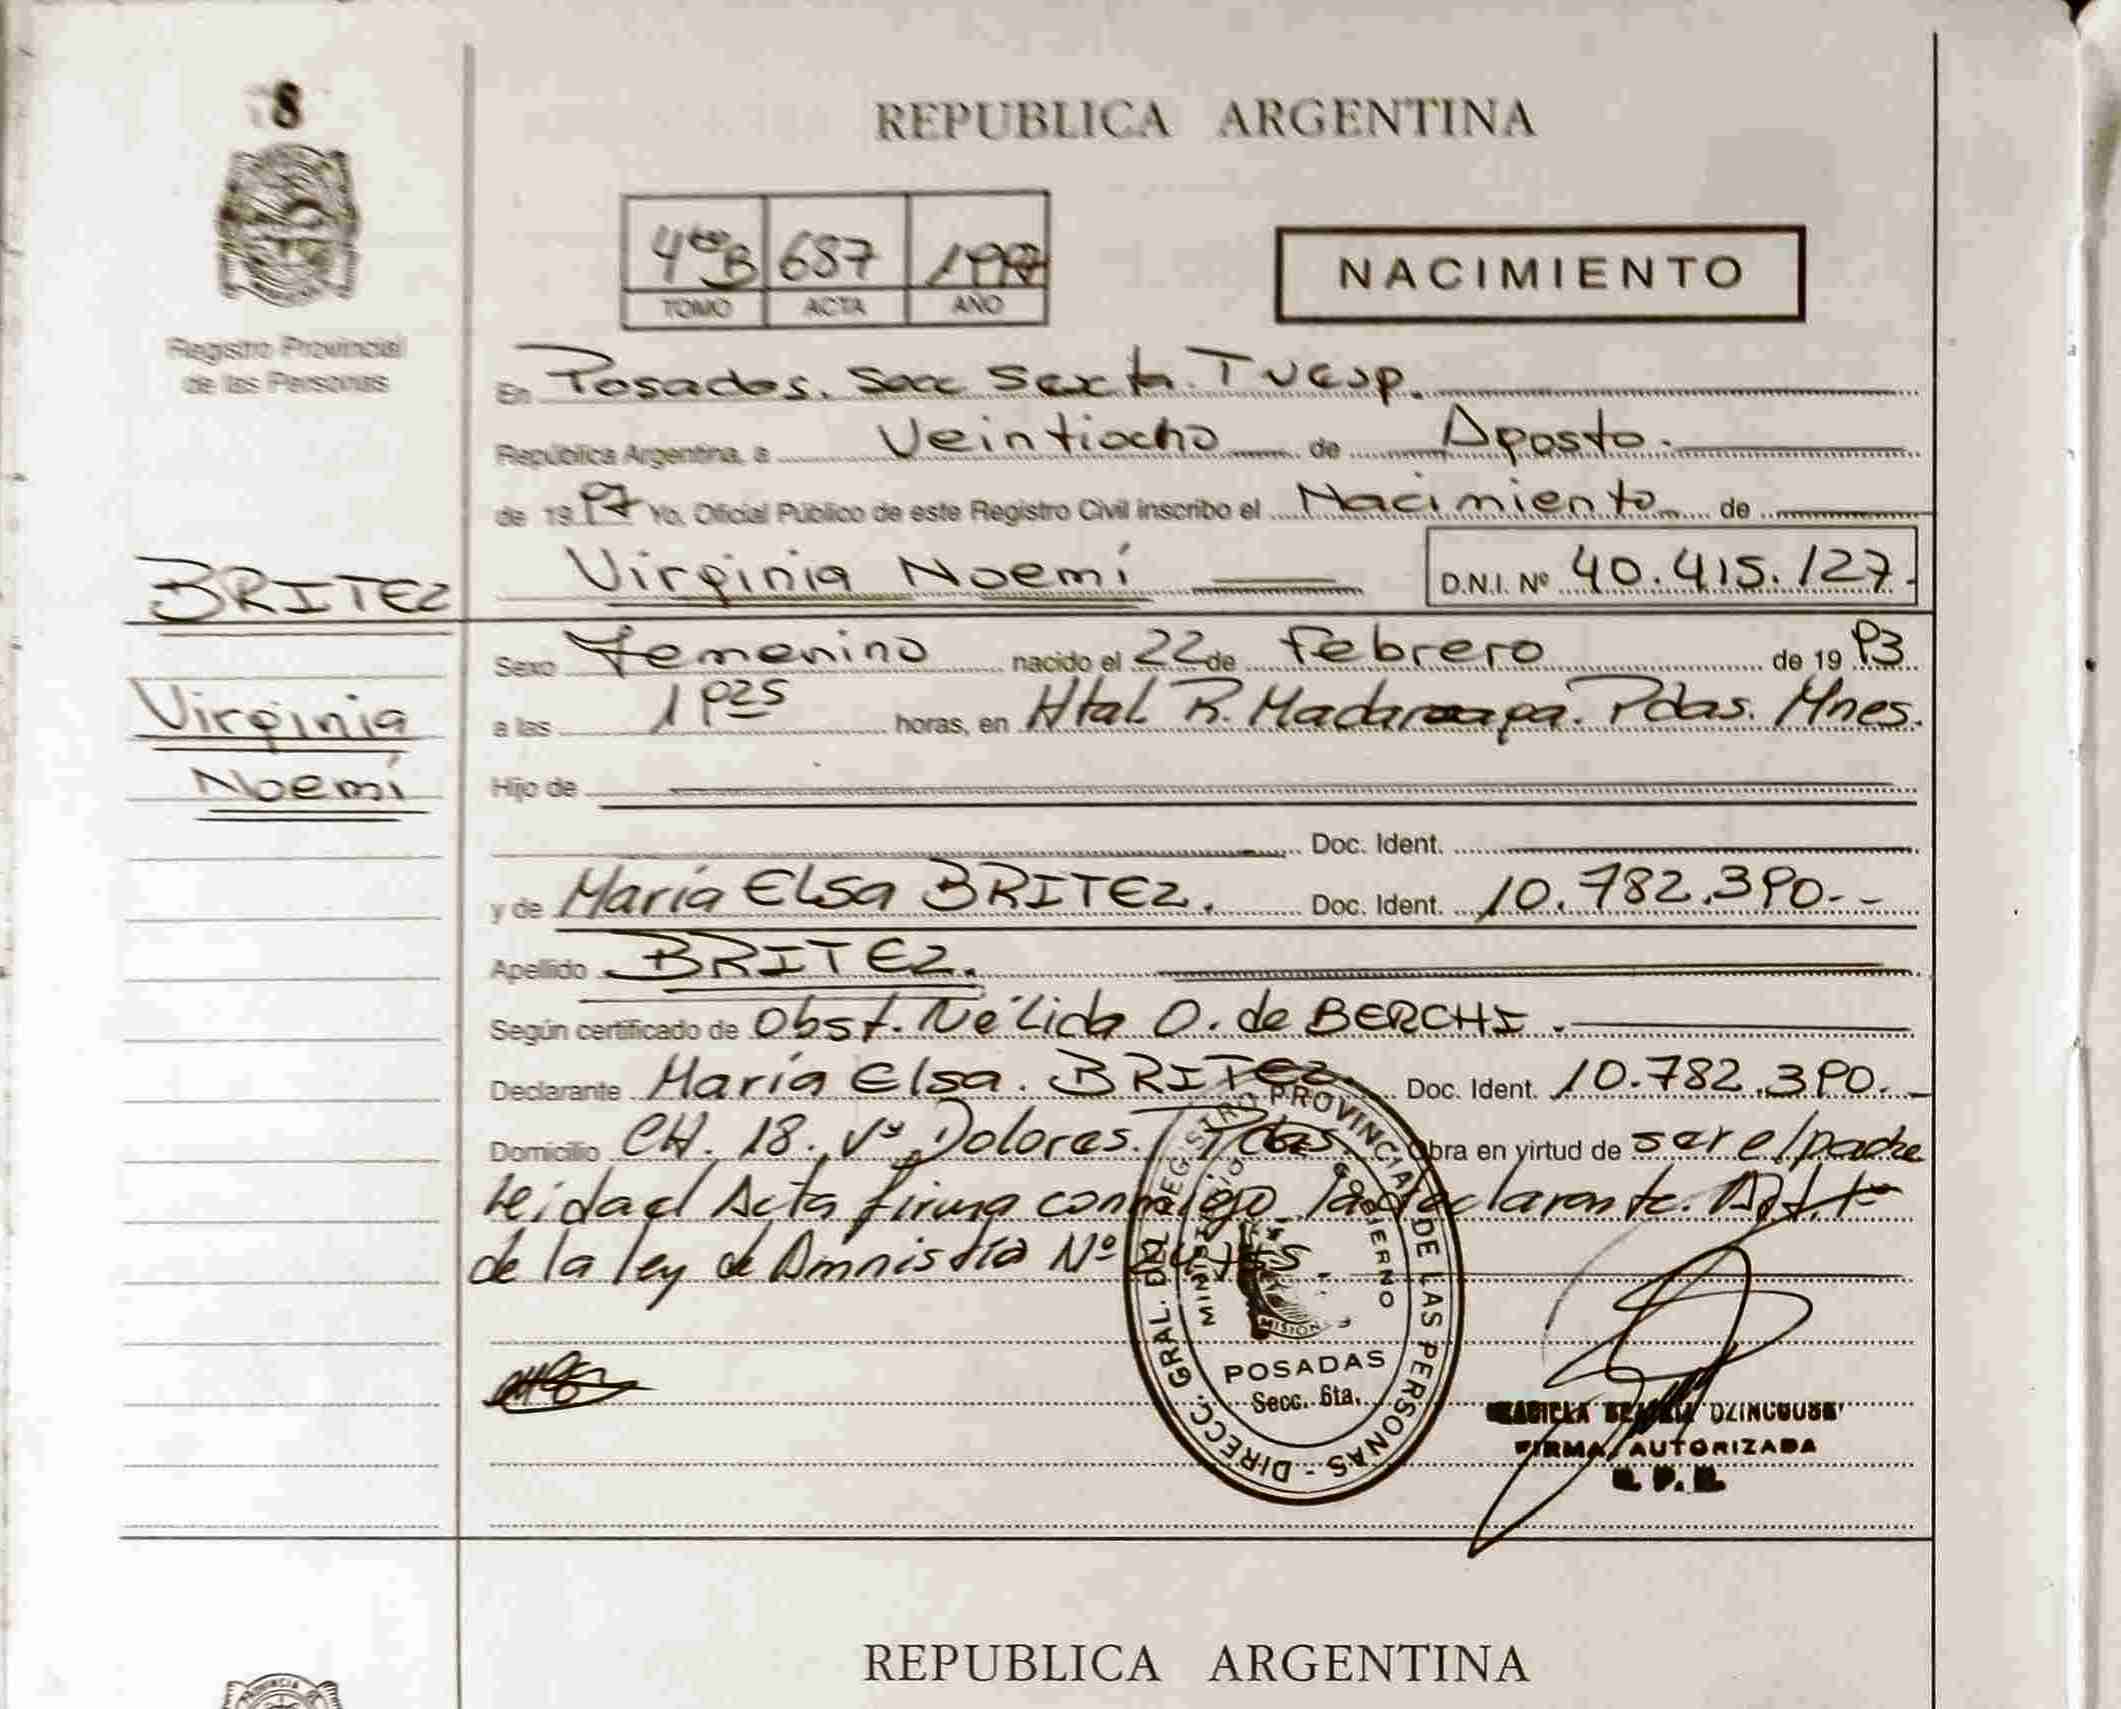 8
REPUBLICA ARGENTINA
4to B 687 1997
TOMO ACTA AÑO
NACIMIENTO
Registro Provincial
de las Personas
En Posadas. Secc Sexta. T Vesp.
República Argentina, a Veintiocho de Agosto.
de 1997 Yo, Oficial Público de este Registro Civil inscribo el Nacimiento de
BRITEZ
Virginia Noemí D.N.I. Nº 40.415.127.
Sexo Femenino nacido el 22 de Febrero de 1993
Virginia
a las 1925 horas, en Htal R. Madariaga. Pdas. Mnes.
Noemí
Hijo de
Doc. Ident.
y de María Elsa BRITEZ. Doc. Ident. 10.782.390.--
Apellido BRITEZ.
Según certificado de Obst. Nélida O. de BERCHI.
Declarante María Elsa. BRITEZ. Doc. Ident. 10.782.390.-
Domicilio CH. 18. Vª Dolores. Pdas. Obra en virtud de ser el padre
leida el Acta firma conmigo la declarante.
de la ley de Amnistía Nº
DIRECC. GRAL. DEL REGISTRO PROVINCIAL DE LAS PERSONAS -
MINISTERIO GOBIERNO
MISIONES
POSADAS
Secc. 6ta.
FIRMA AUTORIZADA
REPUBLICA ARGENTINA
PROVINCIA DE